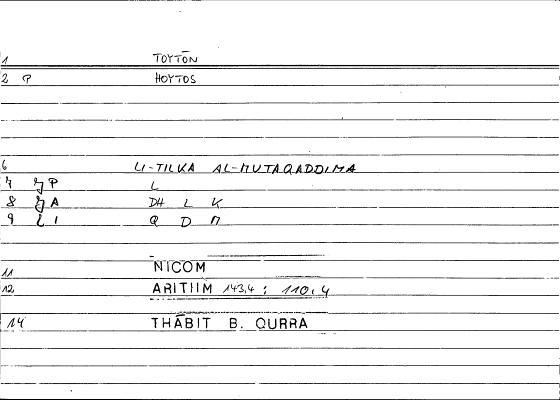 1 TOYTŌN
2 P HOYTOS
6 LI-TILKA AL-MUTAQADDIMA
7 P L
8 A DH L K
9 I Q D M
11 NICOM
12 ARITIIM 143,4 : 110,4
14 THĀBIT B. QURRA